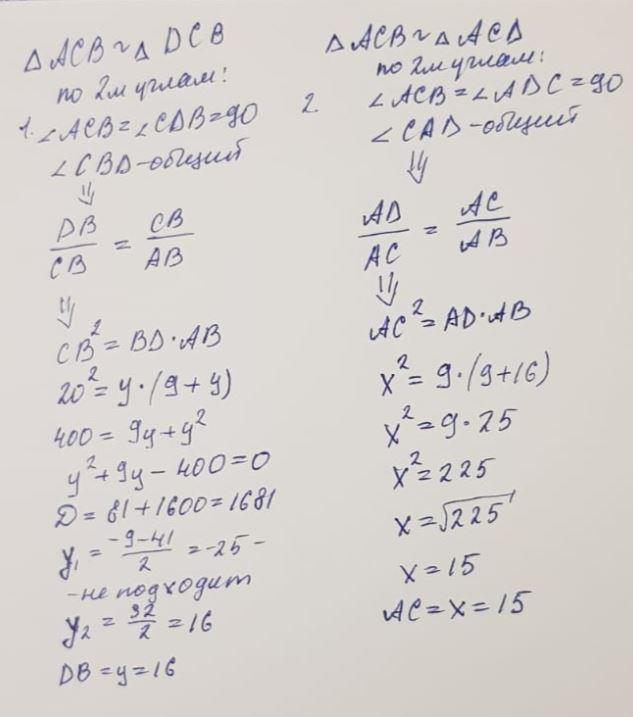 △ACB ~ △DCB
по 2м углам:
1. ∠ACB = ∠CDB = 90
∠CBD - общий
⇓
DB/CB = CB/AB
⇓
CB² = BD · AB
20² = y · (9 + y)
400 = 9y + y²
y² + 9y - 400 = 0
D = 81 + 1600 = 1681
y₁ = (-9-41)/2 = -25 -
- не подходит
y₂ = 32/2 = 16
DB = y = 16
△ACB ~ △ACD
по 2м углам:
2. ∠ACB = ∠ADC = 90
∠CAD - общий
⇓
AD/AC = AC/AB
⇓
AC² = AD · AB
x² = 9 · (9 + 16)
x² = 9 · 25
x² = 225
x = √225
x = 15
AC = x = 15